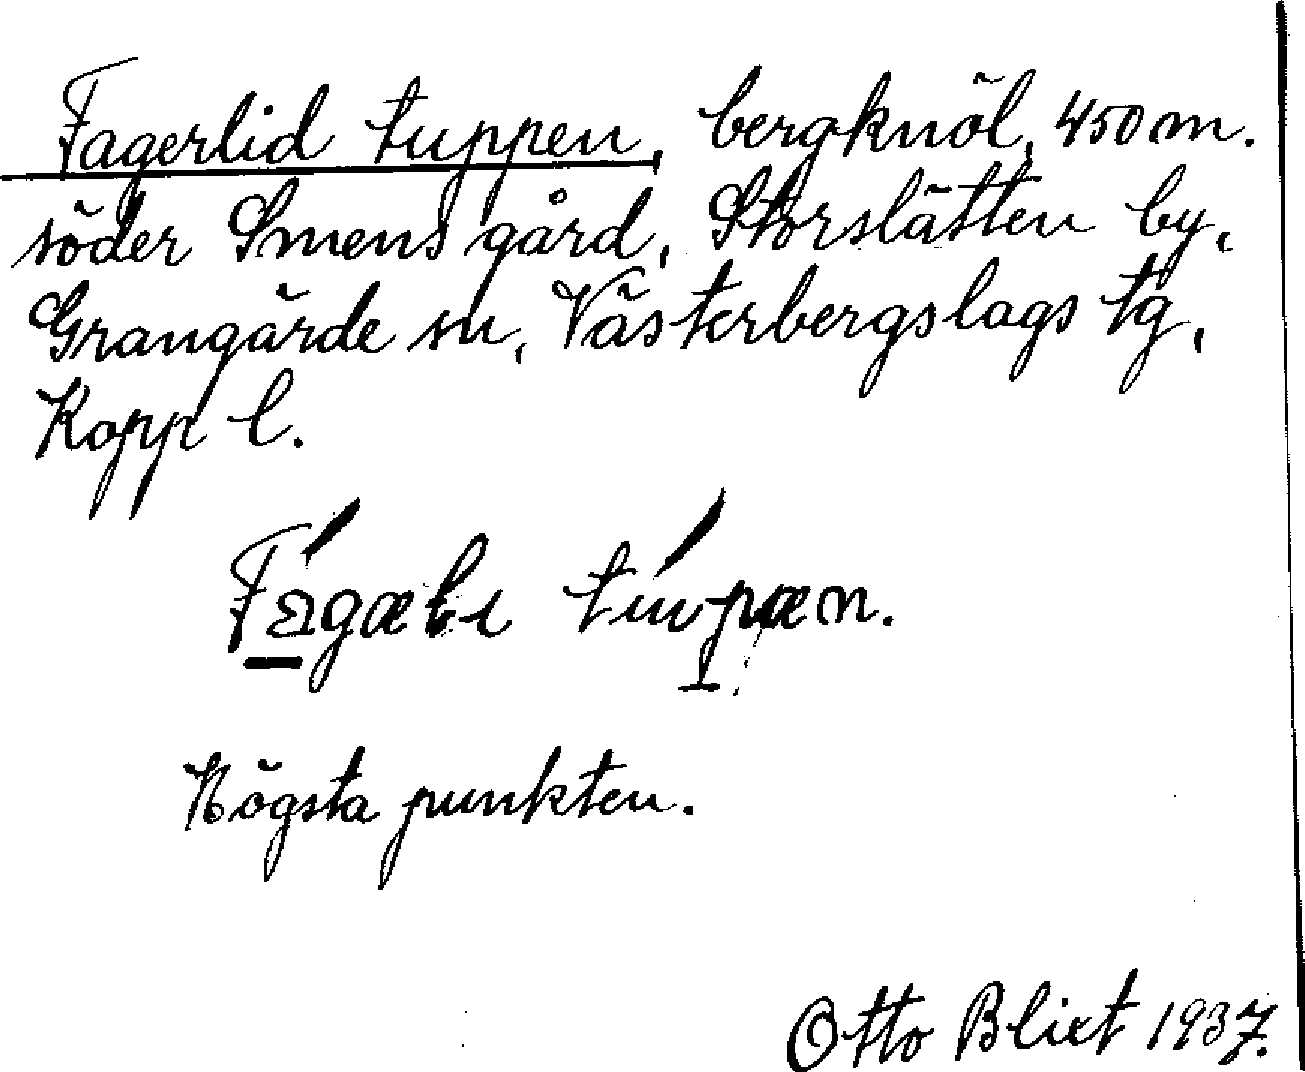 Fagerlid tuppen, bergknöl, 450 m.
söder Smens gård, Storslätten by,
Grangärde sn, Västerbergslags tg,
Kopp l.
tuupæn.
Högsta punkten.
Otto Blixt 1937.